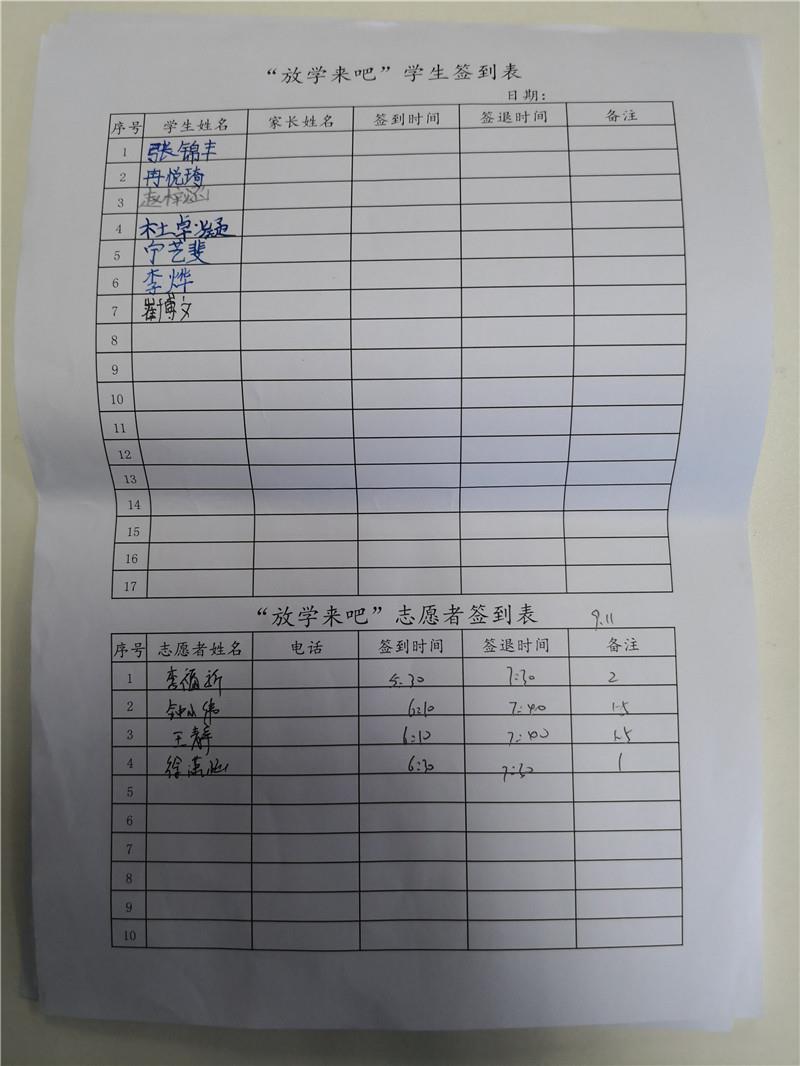 “放学来吧”学生签到表
日期：
序号 学生姓名 家长姓名 签到时间 签退时间 备注
1 张锦丰
2 冉悦琦
3
4 杜卓凝
5 宁艺斐
6 李烨
7 崔博文
8
9
10
11
12
13
14
15
16
17
“放学来吧”志愿者签到表 9.11
序号 志愿者姓名 电话 签到时间 签退时间 备注
1 5:30 7:30 2
2 6:10 7:40 1.5
3 王静 6:10 7:40 1.5
4 6:30 7:30 1
5
6
7
8
9
10